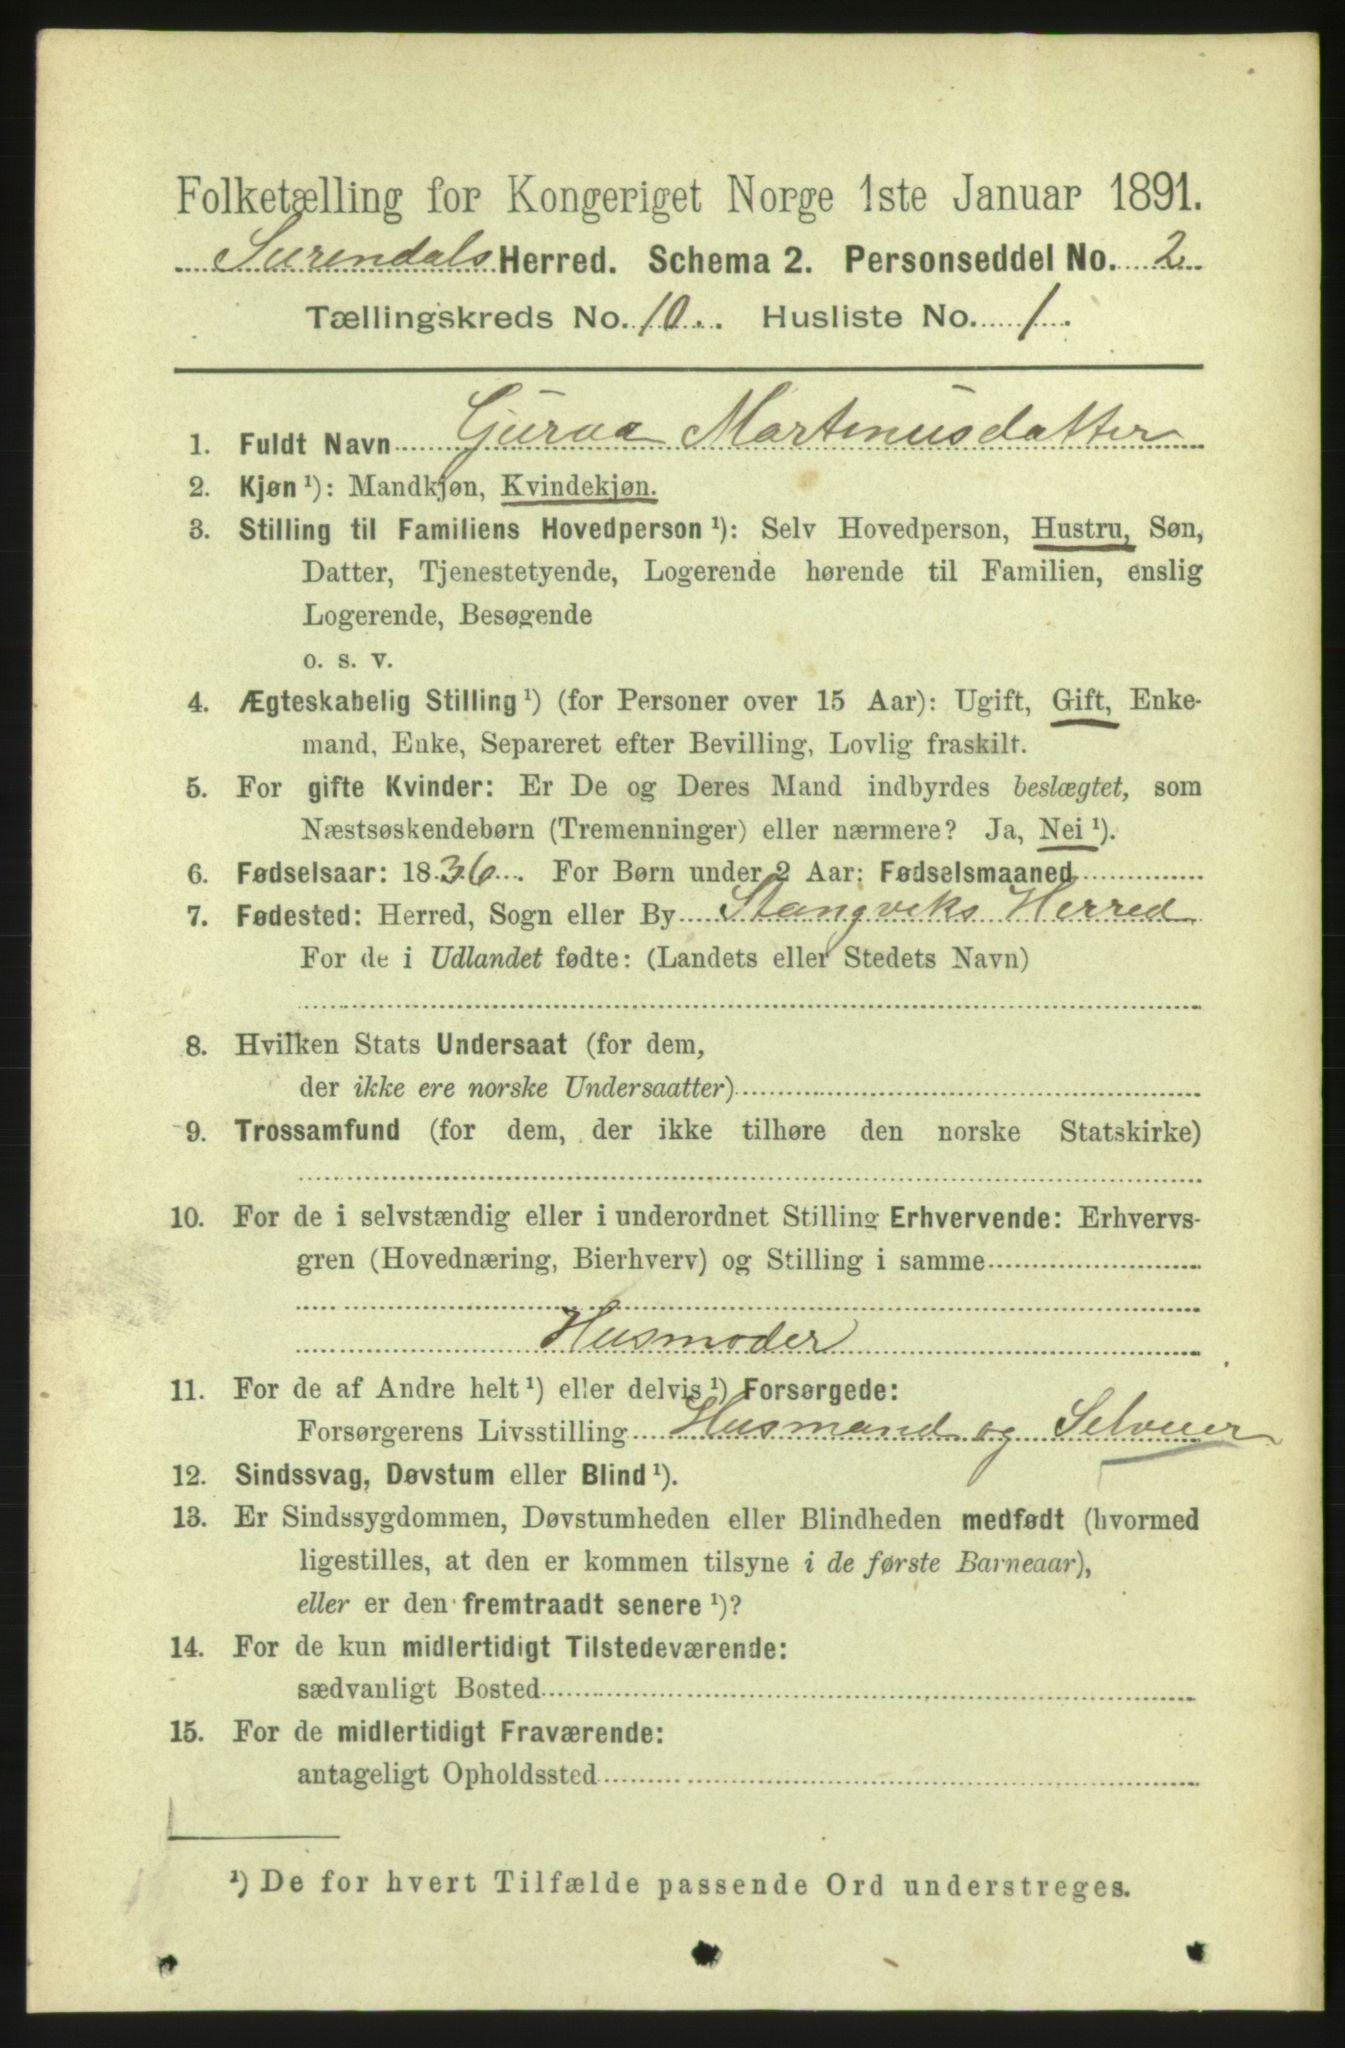 Folketælling for Kongeriget Norge 1ste Januar 1891.
Surendals Herred. Schema 2. Personseddel No. 2
Tællingskreds No. 10. Husliste No. 1.
1. Fuldt Navn Guroa Martinusdatter
2. Kjøn ¹): Mandkjøn, Kvindekjøn.
3. Stilling til Familiens Hovedperson ¹): Selv Hovedperson, Hustru, Søn,
Datter, Tjenestetyende, Logerende hørende til Familien, enslig
Logerende, Besøgende
o. s. v.
4. Ægteskabelig Stilling ¹) (for Personer over 15 Aar): Ugift, Gift, Enke-
mand, Enke, Separeret efter Bevilling, Lovlig fraskilt.
5. For gifte Kvinder: Er De og Deres Mand indbyrdes beslægtet, som
Næstsøskendebørn (Tremenninger) eller nærmere? Ja, Nei ¹).
6. Fødselsaar: 1836. For Børn under 2 Aar: Fødselsmaaned
7. Fødested: Herred, Sogn eller By Stangviks Herred
For de i Udlandet fødte: (Landets eller Stedets Navn)
8. Hvilken Stats Undersaat (for dem,
der ikke ere norske Undersaatter)
9. Trossamfund (for dem, der ikke tilhøre den norske Statskirke)
10. For de i selvstændig eller i underordnet Stilling Erhvervende: Erhvervs-
gren (Hovednæring, Bierhverv) og Stilling i samme
Husmoder
11. For de af Andre helt ¹) eller delvis ¹) Forsørgede:
Forsørgerens Livsstilling Husmand og Selveier
12. Sindssvag, Døvstum eller Blind ¹).
13. Er Sindssygdommen, Døvstumheden eller Blindheden medfødt (hvormed
ligestilles, at den er kommen tilsyne i de første Barneaar),
eller er den fremtraadt senere ¹)?
14. For de kun midlertidigt Tilstedeværende:
sædvanligt Bosted
15. For de midlertidigt Fraværende:
antageligt Opholdssted
¹) De for hvert Tilfælde passende Ord understreges.